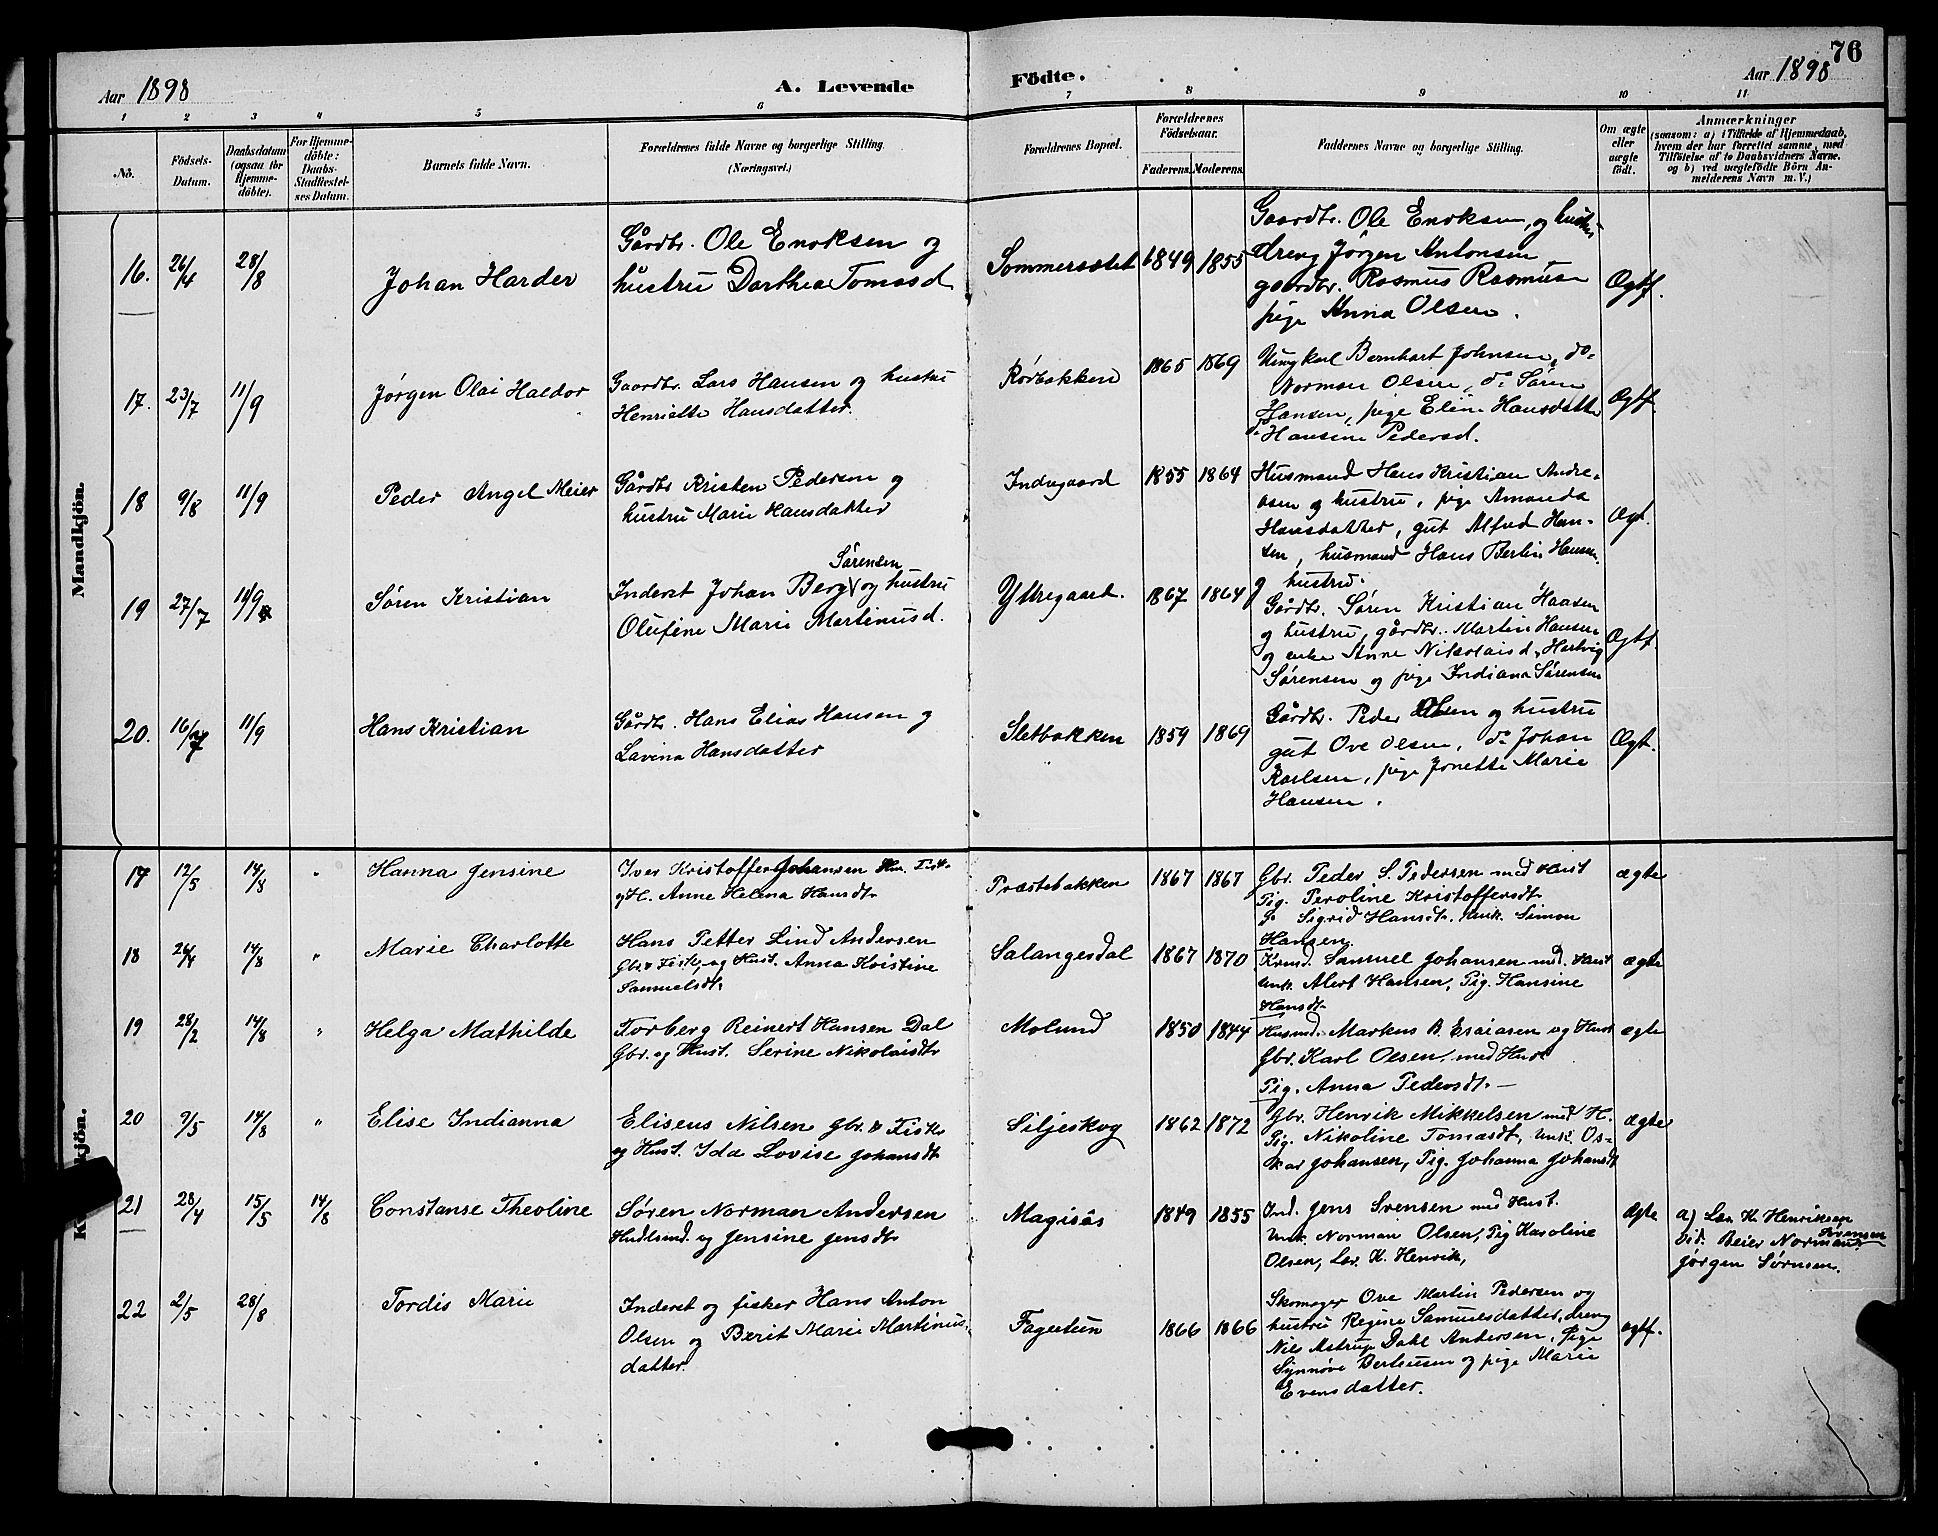 76
Aar 1898 A. Levende Födte. Aar 1898
1 2 3 4 5 6 7 8 9 10 11
No.
Födsels-Datum.
Daabsdatum (ogsaa for Hjemmedöbte).
For Hjemmedöbte: Daabs-Stadfæstelses Datum.
Barnets fulde Navn.
Forældrenes fulde Navne og borgerlige Stilling. (Næringsvei.)
Forældrenes Bopæl.
Forældrenes Födselsaar.
Faderens. Moderens.
Faddernes Navne og borgerlige Stilling.
Om ægte eller uægte födt.
Anmærkninger
(saasom: a) i Tilfælde af Hjemmedaab, hvem der har forrettet samme, med Tilföielse af to Daabsvidners Navne. og b) ved uægtefödte Börn Anmelderens Navn m. V.)
Mandkjön.
16. 26/4 28/8 Johan Harder
Gårdbr. Ole Enoksen og
hustru Dorthea Tomasd
Sommersætet 1849 1855
Gaardbr. Ole Enoksen, og hustru
dreng Jørgen Antonsen
gaardbr. Rasmus Rasmusen
pige Anna Olsen.
Ægtf.
17. 23/7 11/9 Jørgen Olai Haldor
Gaardbr. Lars Hansen og hustru
Henriette Hansdatter.
Rødbakken 1865 1869
Ungkarl Bernhart Johnsen, do.
Norman Olsen, do Søren
Hansen, pige Eline Hansdatter
do Hansine Pedersd.
Ægtf.
18 9/8 11/9 Peder Angel Meier
Gårdbr Kristen Pedersen og
hustru Marie Hansdatter
Indregaard 1855 1864
Husmand Hans Kristian Andre-
asen og hustru, pige Amanda
Hansdatter, gut Alfred Han-
sen, husmand Hans Berlin Hansen
g hustru.
Ægt.
19 27/7 11/9 Søren Kristian
Sørensen
Inderst Johan Berg og hustru
Olufine Marie Martinusd.
Yttregaard. 1867 1864
Gårdbr. Søren Kristian Haasen
og hustru, gårdbr. Martin Hansen
og enke Anne Nikolaisd, Hartvig
Sørensen og pige Indiana Sørensen
Ægtf.
20. 16/7 11/9 Hans Kristian
Gårdbr. Hans Elias Hansen g
Lavina Hansdatter
Sletbakken 1859 1869
Gårdbr. Peder Olsen og hustru
gut Ove Olsen, do Johan
Karlsen, pige Jonette Marie
Hansen.
Ægt.
17 12/5 14/8 " Hanna Jensine
Iver Kristoffer Johansen Hm. Fisk.
og H. Anne Helena Hansdtr
Præstebakken 1867 1867
Gbr. Peder S. Pedersen med Hust
Pig. Peroline Kristoffersdt.
do Sigrid Hansdt. Unk. Simon
Hansen.
ægte
18 26/4 14/8 " Marie Charlotte
Hans Petter Lind Andersen
Gbr. Fisk. og Hust. Anna Kristine
Samuelsdt.
Salangesdal 1867 1870
Samuel Johansen med. Hust
Unk. Alert Hansen, Pig. Hansine
Hansdt.
ægte
19 28/2 14/8 " Helga Mathilde
Torberg Reinert Hansen Dal
Gbr. og Hust. Serine Nikolaisdtr
Molund 1850 1844
Husmd. Markus B. Esaiasen og Hust
Gbr. Karl Olsen, med Hust
Pig. Anna Pedersdt. —
ægte
20 9/5 14/8 " Elise Indianna
Eliseus Nilsen Gbr. & Fisk.
og Hust. Ida Lovise Johansdtr
Siljeskog 1862 1872
Gbr. Henrik Mikkelsen med H.
Pig. Nikoline Tomasdt, Unk. Os-
kar Johansen, Pig. Johanna Johansdt
ægte
21 28/4 15/5 14/8 Constanse Theoline
Søren Norman Andersen
Hndlsmd. og Jensine Jensdtr
Magisås 1849 1855
Ind. Jens Svensen med Hust.
Unk. Norman Olsen, Pig Karoline
Olsen, Lær. K. Henrik,
ægte
a) Lær. K. Henriksen
Svensen
vid. Beier Normand
Jørgen Sørnsen.
22 2/5 28/8 Tordis Marie
Inderst og fisker Hans Anton
Olsen og Berit Marie Martinus-
datter.
Fagertun 1866 1866
Skomager Ove Martin Pedersen og
hustru Regine Samuelsdatter, dreng
Nils Astrup Dahl Andersen, pige
Synnøve Berteusen og pige Marie
Evensdatter.
ægtf.